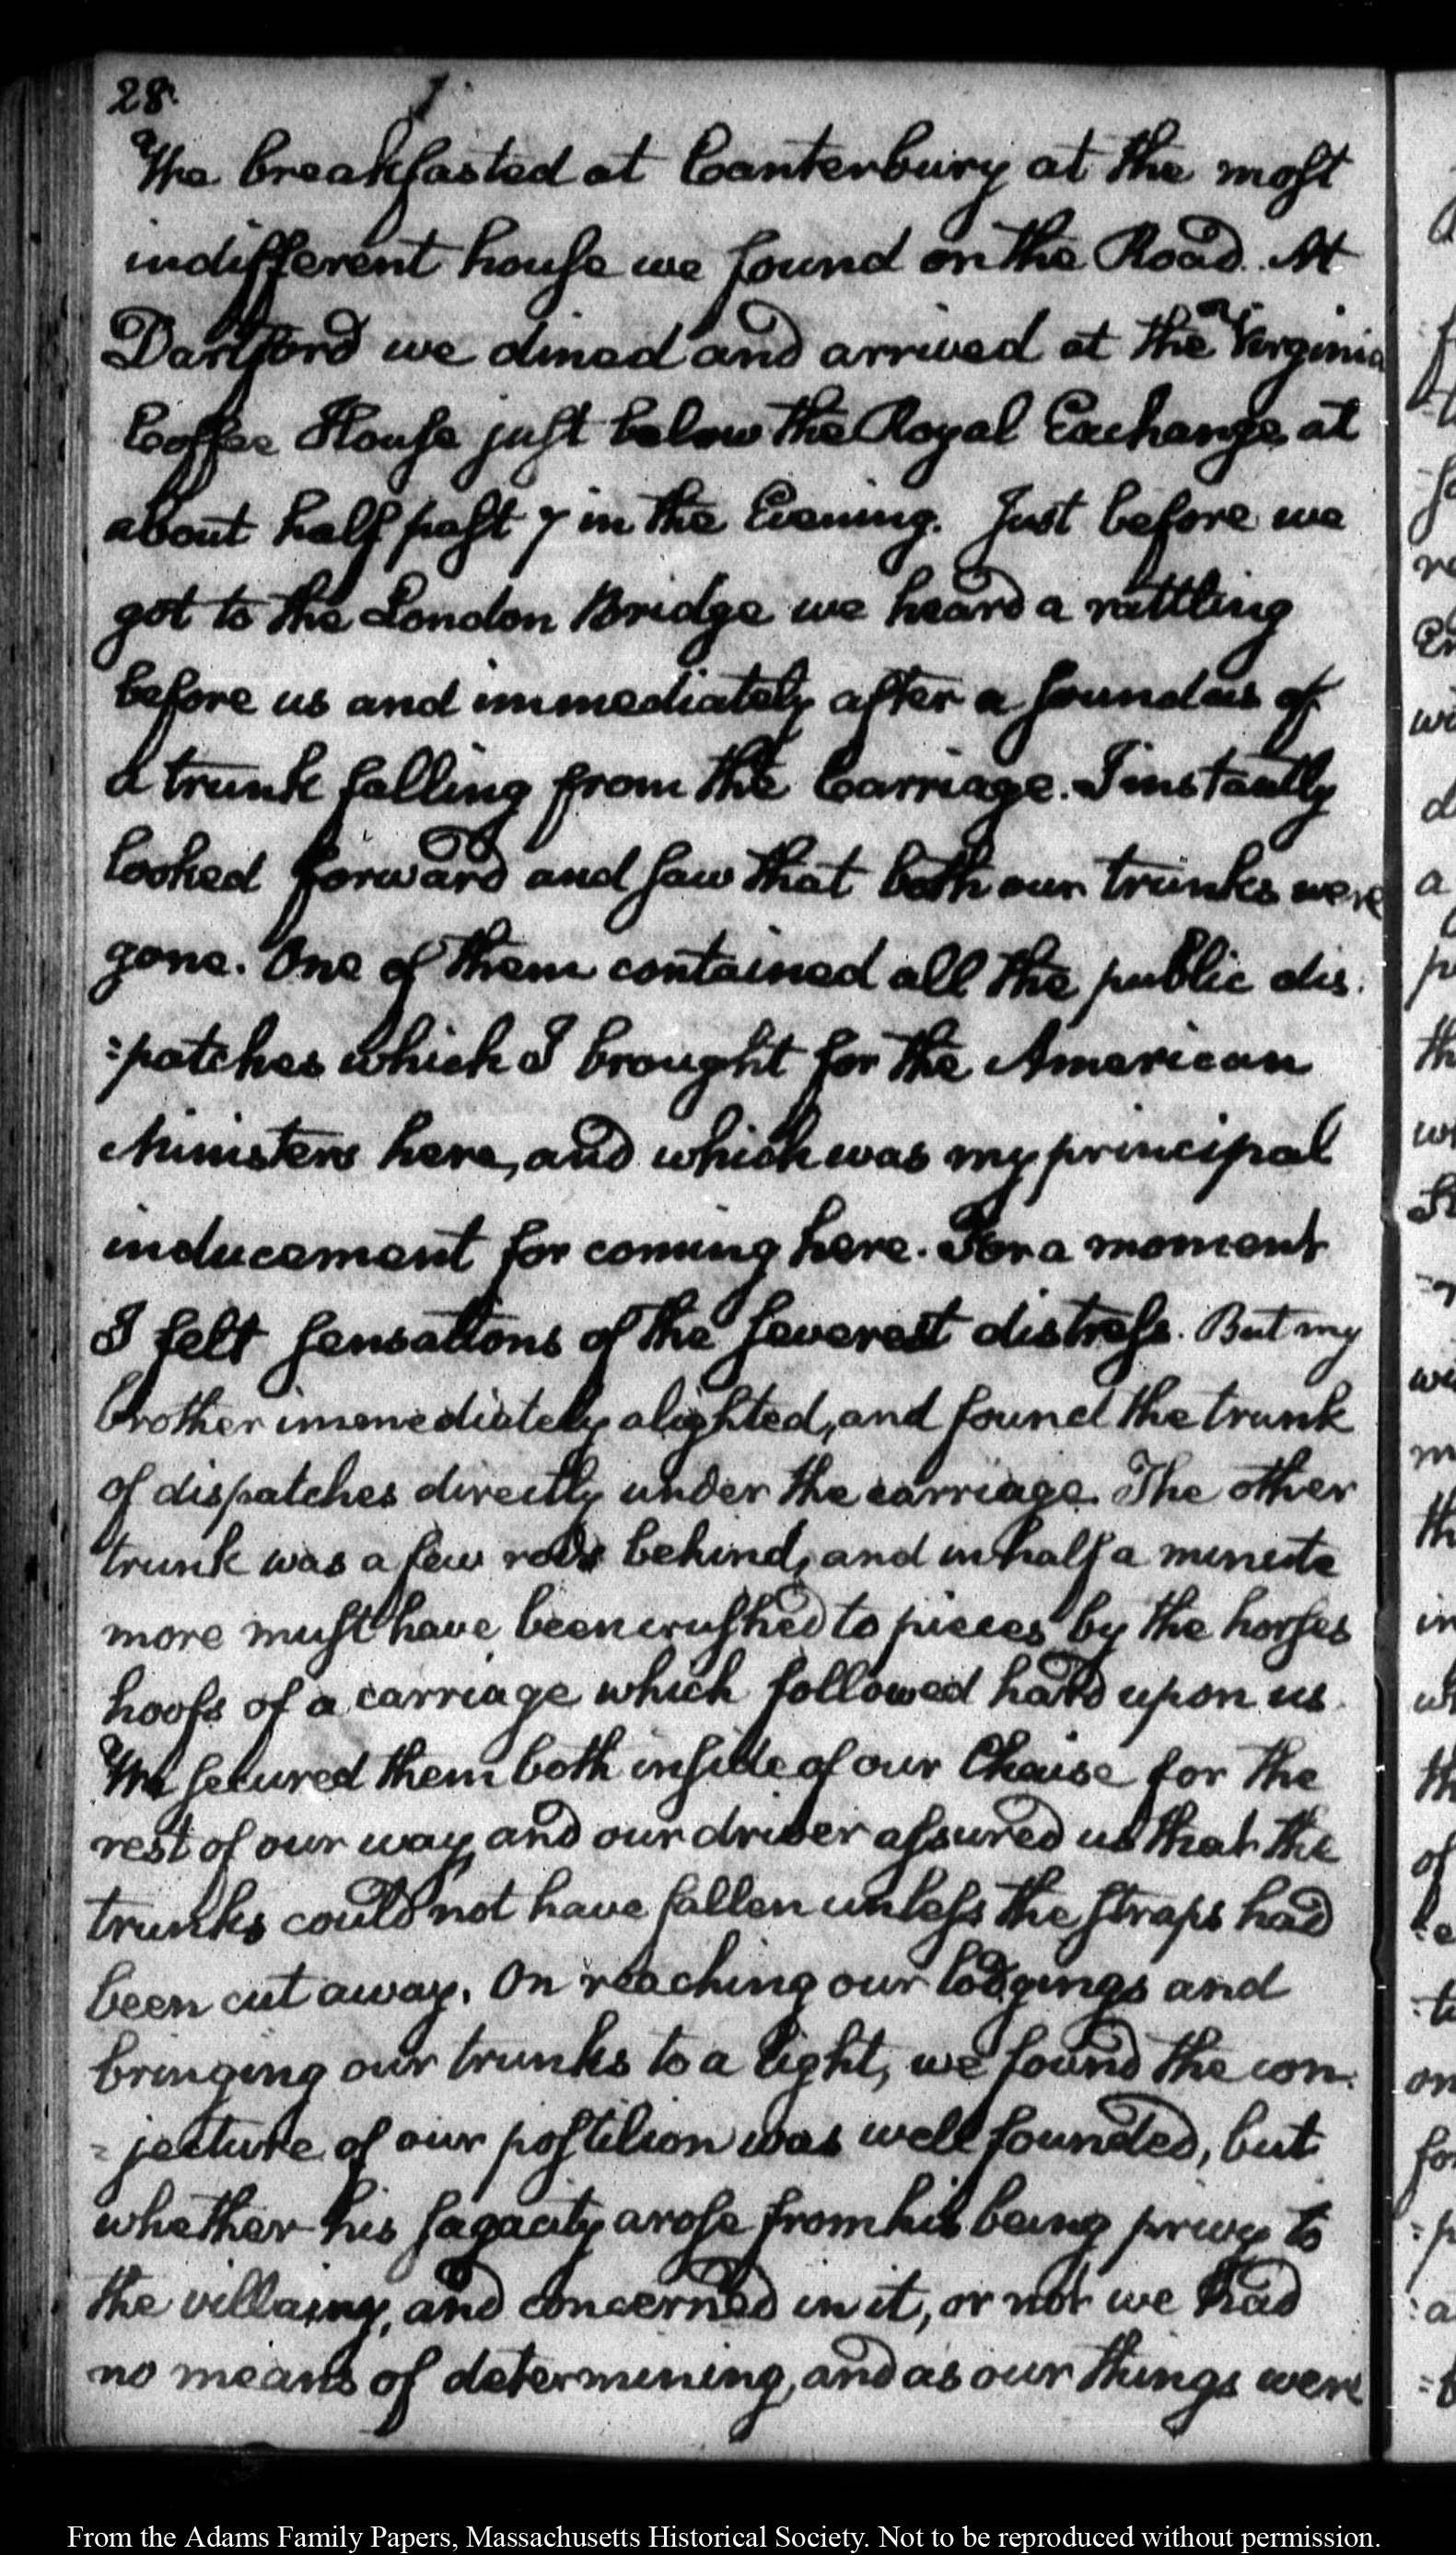 28.
We breakfasted at Canterbury at the most
indifferent house we found on the Road. At
Dartford we dined and arrived at the Virginia
Coffee House just below the Royal Exchange, at
about half past 7 in the Evening. Just before we
got to the London Bridge we heard a rattling
before us and immediately after a sound as of
a trunk falling from the Carriage. I instantly
looked forward and saw that both our trunks were
gone. One of them contained all the public dis.
=patches which I brought for the American
Ministers here, and which was my principal
inducement for coming here. For a moment
I felt sensations of the severest distress. But my
brother immediately alighted, and found the trunk
of dispatches directly under the carriage. The other
trunk was a few rods behind, and in half a minute
more must have been crushed to pieces by the horses
hoofs of a carriage which followed hard upon us.
We secured them both inside of our Chaise for the
rest of our way, and our driver assured us that the
trunks could not have fallen unless the straps had
been cut away. On reaching our lodgings and
bringing our trunks to a light, we found the con.
=jecture of our postilion was well founded, but
whether his sagacity arose from his being privy to
the villainy, and concerned in it, or not we had
no means of determining, and as our things were
From the Adams Family Papers, Massachusetts Historical Society. Not to be reproduced without permission.